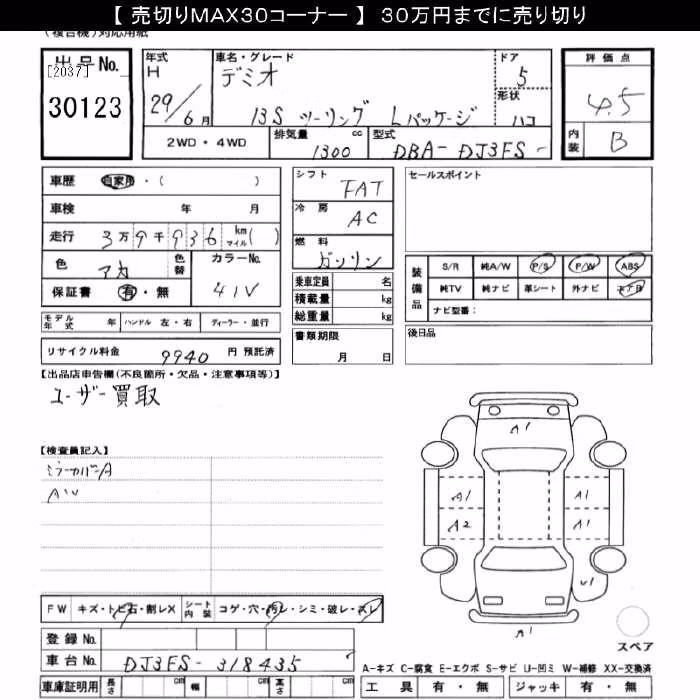 【 売切りMAX30コーナー 】 30万円までに売り切り
(複合機)対応用紙
出品No.
[2037]
30123
年式
H
29/6月
車名・グレード
デミオ
13S ツーリング Lパッケージ
ドア
5
形状
ハコ
評価点
4.5
内装
B
2WD・4WD
排気量
cc
1300
型式
DBA-DJ3FS-
車歴
自家用・( )
車検 年 月
走行 3万9千936 km マイル( )
色 アカ
色替
カラーNo.
41V
保証書 有・無
シフト
FAT
冷房
AC
燃料
ガソリン
乗車定員 名
積載量 kg
総重量 kg
セールスポイント
装備品
S/R 純A/W P/S P/W ABS
純TV 純ナビ 革シート 外ナビ エアB
ナビ型番:
モデル年式 年 ハンドル 左・右 ディーラー・並行
リサイクル料金 9940 円 預託済
書類期限
月 日
後日品
【出品店申告欄(不良箇所・欠品・注意事項等)】
ユーザー買取
【検査員記入】
ミラーカバーA
AW
A1
A1
A1
A2
A1
U1
A1
スペア
FW キズ・トビ石・割レX シート内装 コゲ・穴・汚レ・シミ・破レ・スレ
登録No.
車台No. DJ3FS-318435
車庫証明用 長さ cm 幅 cm 高さ cm
A-キズ C-腐食 E-エクボ S-サビ U-凹ミ W-補修 XX-交換済
工具 有・無 ジャッキ 有・無